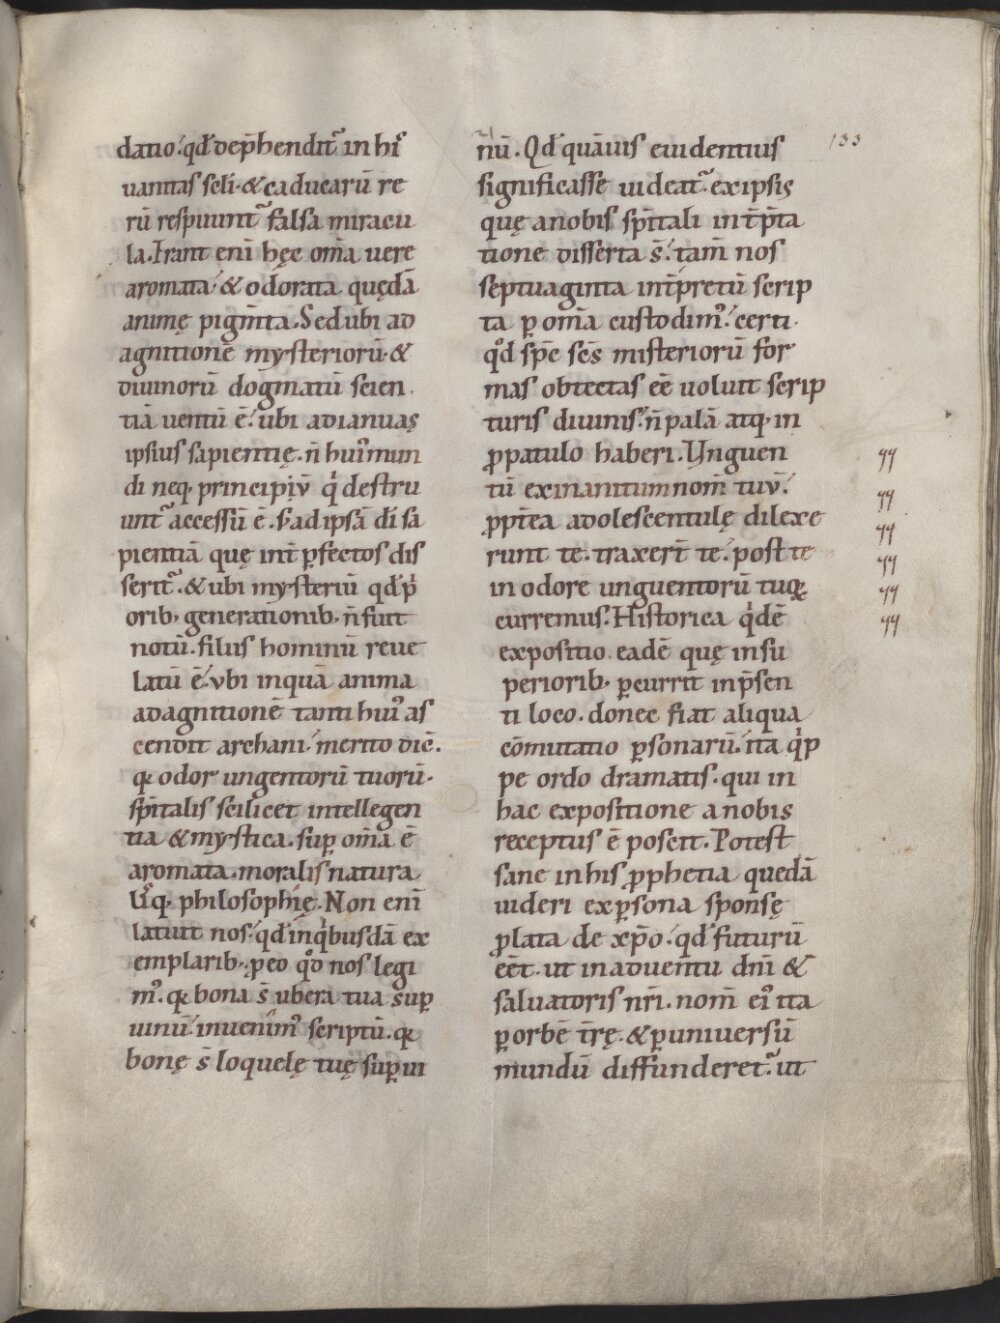 datio. qđ dep̄hendit᷑ in hi᷒
uanitas sc̄li. & caducarū re
rū respuunt᷑ falsa miracu
la. Erant eni̅ hęc om̄a uere
aromata. & odorata quędā
animę pigm̄ta. Sed ubi ad
agnitionē mysteriorū &
diuinorū dogmatū scien
tiā uentū ē. ubi ad ianuas
ipsius sapientię. n̄ hui᷒ mun
di neq. principiū q' destru
unt᷑ accessū ē. s; ad ipsā dī sa
pientiā quę int̄ ꝑfectos dis
serit᷑. & ubi mysteriū qđ p'
orib; generationib; n̄ fuit
notū. filiis hominū reue
latū ē. ubi inquā anima
ad agnitionē tanti hui᷒ as
cendit archani. merito dic̄.
q; odor ungentorū tuorū.
sp̄italis scilicet intellegen
tia & mystica. suꝑ om̄a ē
aromata. moralis natura
lisq; philosophię. Non eni̅
latuit nos. qđ in q'busdā ex
emplarib; ꝓ eo qđ nos legi
m᷒. q; bona s̄ ubera tua suꝑ
uinū. inuenim᷒ scriptū. q;
bonę s̄ loquelę tuę suꝑ ui
nū. Qđ quāuis euidentius
significasse uideat᷑. ex ipsis
quę a nobis sp̄itali int̄p̄ta
tione disserta s̄. tam̄ nos
septuaginta int̄pretū scrip
ta ꝑ om̄a custodim᷒. certi
qđ sp̄c sc̄s misteriorū for
mas obtectas eē uoluit scrip
turis diuinis. n̄ palā atq; in
ꝓpatulo haberi. Unguen
tū exinanitum nom̄ tuū.
ꝓpt̄ea adolescentulę dilexe
runt te. traxer̄t te. post te
in odore unguentorū tuoꝝ
curremus. Historica q'dē
expositio eadē quę in su
periorib; ꝑcurrit in p̄sen
ti loco. donec fiat aliqua
cōmutatio ꝑsonarū. ita q'p
pe ordo dramatis. qui in
hac expositione a nobis
receptus ē poscit. Potest
sane in his ꝓphetia quedā
uideri ex ꝑsona sponsę
ꝓlata de xp̄o. qđ futurū
eēt. ut in aduentu dn̄i &
saluatoris nr̄i. nom̄ ei᷒ ita
ꝑ orbē t̄rę. & ꝑ uniuersū
mundū diffunderet᷑. ut
133